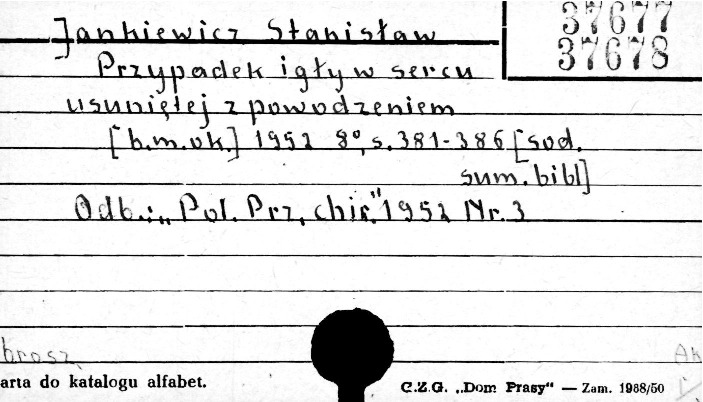 37677
37678
Jankiewicz Stanisław
Przypadek igły w sercu
usuniętej z powodzeniem
[b.m.ok.] 1952 8°, s. 381-386 [sod.
sum. bibl]
Odb.: „Pol. Prz. chir." 1952 Nr. 3
brosz.
arta do katalogu alfabet.
C.Z.G. „Dom Prasy" — Zam. 1988/50